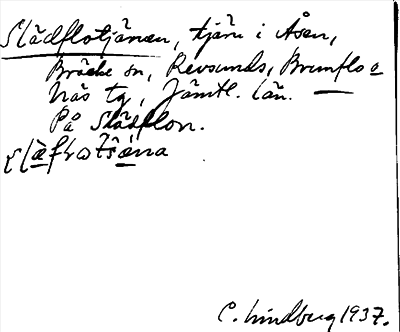 Slädflotjärnen, tjärn i Åsen,
Bräcke sn, Revsunds, Brunflo o
Näs tg, Jämtl. län.
På Slädflon.
C. Lindberg 1937.